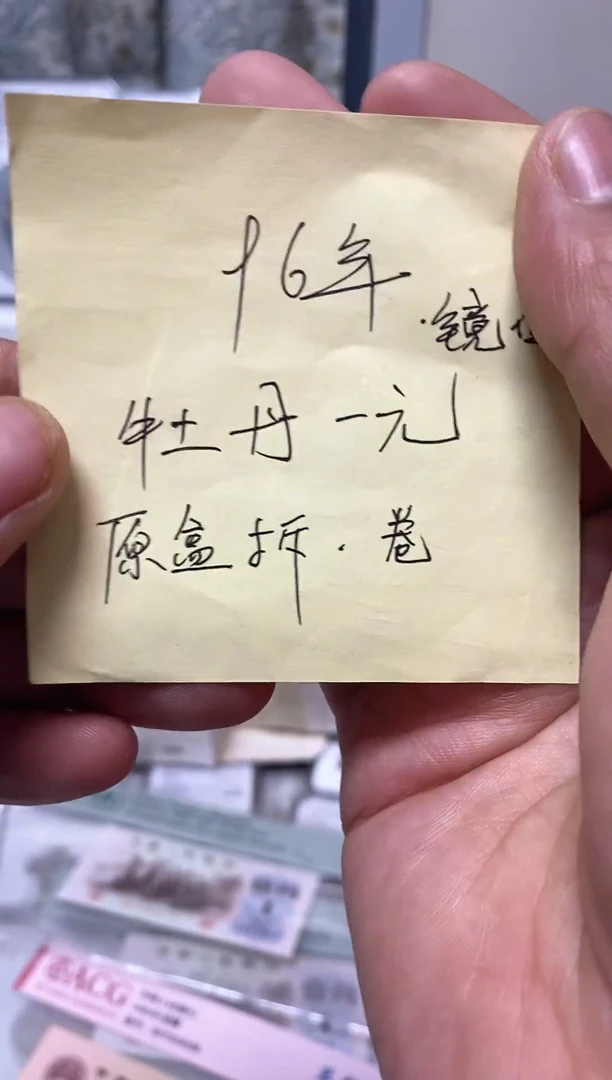 96年
镜
牡丹一元
原盒拆.卷
ACG